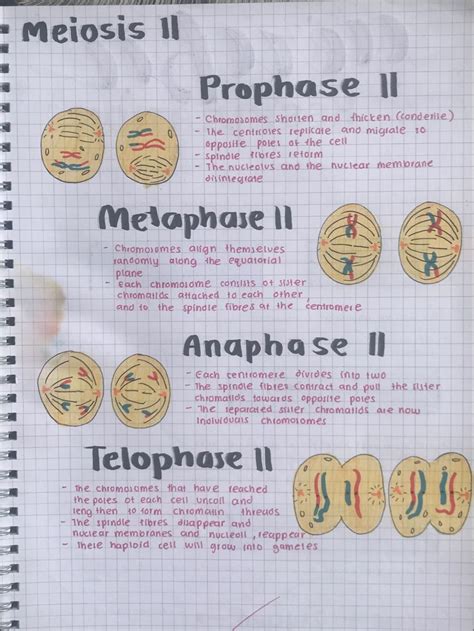 Meiosis II
Prophase II
- Chromosomes shorten and thicken (condense)
- The centrioles replicate and migrate to
opposite poles of the cell
- Spindle fibres reform
- The nucleolus and the nuclear membrane
disintegrate
Metaphase II
- Chromosomes align themselves
randomly along the equatorial
plane
- Each chromosome consists of sister
chromatids attached to each other,
and to the spindle fibres at the centromere
Anaphase II
- Each centromere divides into two
- The spindle fibres contract and pull the sister
chromatids towards opposite poles
- The separated sister chromatids are now
individuals chromosomes
Telophase II
- The chromosomes that have reached
the poles of each cell uncoil and
lengthen to form chromatin threads
- The spindle fibres disappear and
nuclear membranes and nucleoli, reappear
- These haploid cell will grow into gametes